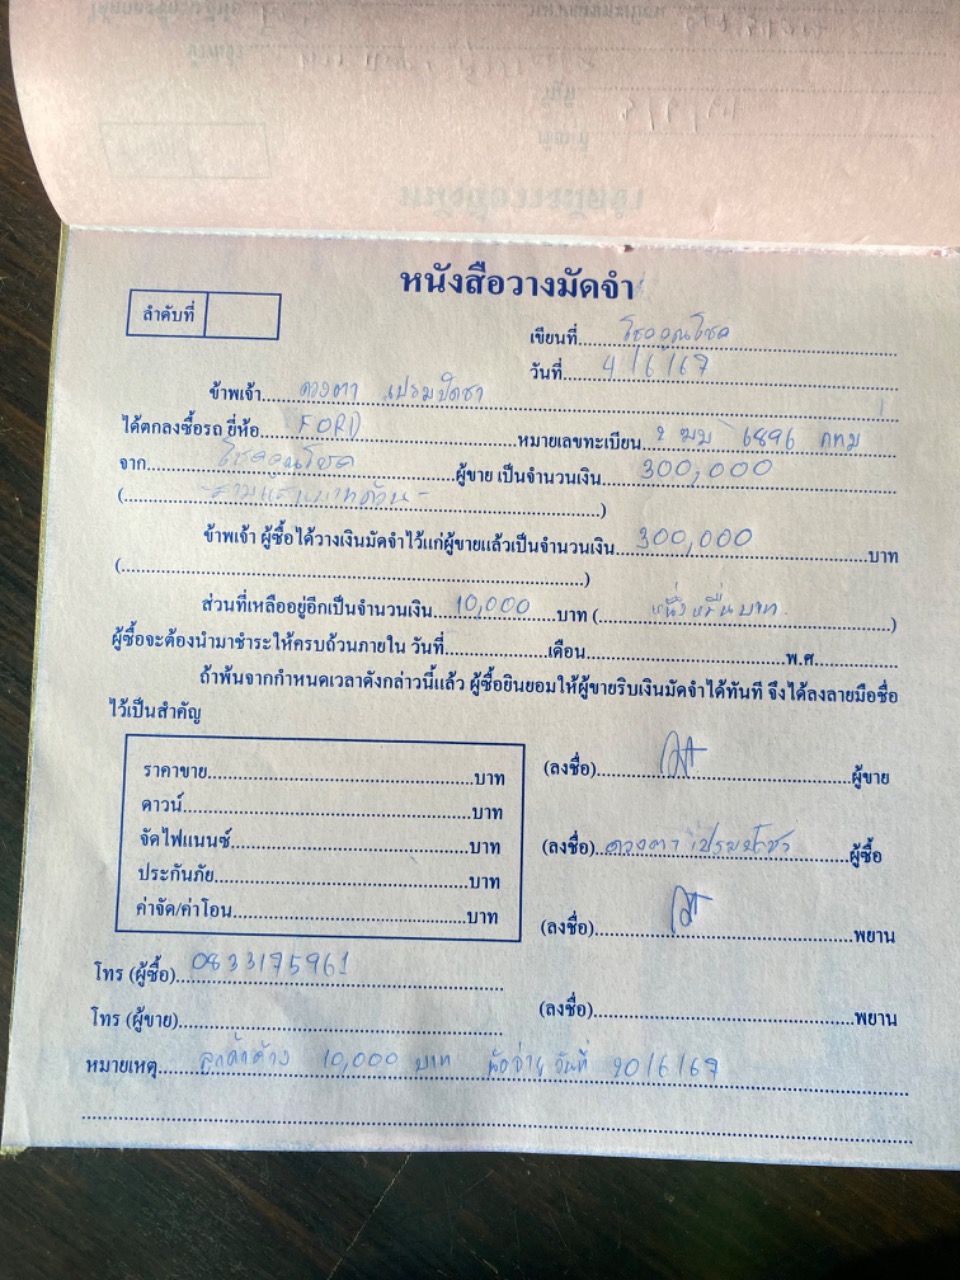 หนังสือวางมัดจำ
ลำดับที่
เขียนที่ โชคคูณโชค
วันที่ 4/6/67
ข้าพเจ้า ดวงตา เปรมปรีชา
ได้ตกลงซื้อรถ ยี่ห้อ FORD หมายเลขทะเบียน 2 ฒบ 6896 กทม
จาก โชคคูณโชค ผู้ขาย เป็นจำนวนเงิน 300,000
( -สามแสนบาทถ้วน- )
ข้าพเจ้า ผู้ซื้อได้วางเงินมัดจำไว้แก่ผู้ขายแล้วเป็นจำนวนเงิน 300,000 บาท
( )
ส่วนที่เหลืออยู่อีกเป็นจำนวนเงิน 10,000 บาท ( หนึ่งหมื่นบาท )
ผู้ซื้อจะต้องนำมาชำระให้ครบถ้วนภายใน วันที่ เดือน พ.ศ.
ถ้าพ้นจากกำหนดเวลาดังกล่าวนี้แล้ว ผู้ซื้อยินยอมให้ผู้ขายริบเงินมัดจำได้ทันที จึงได้ลงลายมือชื่อ
ไว้เป็นสำคัญ
ราคาขาย บาท
ดาวน์ บาท
จัดไฟแนนซ์ บาท
ประกันภัย บาท
ค่าจัด/ค่าโอน บาท
(ลงชื่อ) ผู้ขาย
(ลงชื่อ) ดวงตา เปรมปรีชา ผู้ซื้อ
(ลงชื่อ) พยาน
(ลงชื่อ) พยาน
โทร (ผู้ซื้อ) 0833175961
โทร (ผู้ขาย)
หมายเหตุ ลูกค้าค้าง 10,000 บาท นัดจ่าย วันที่ 20/6/67